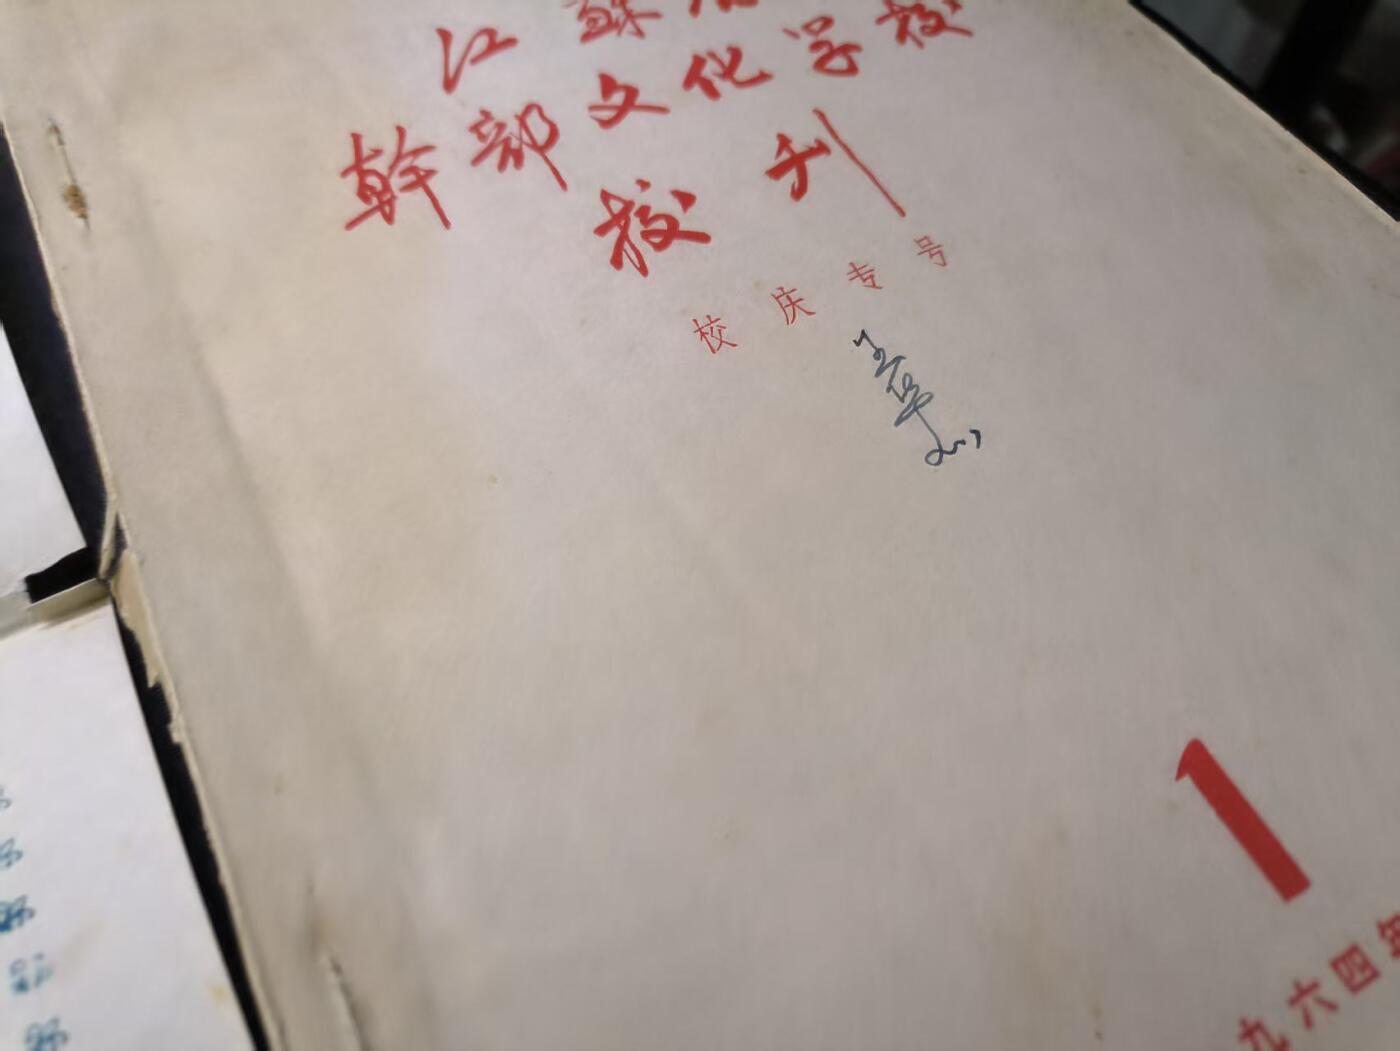 江蘇省
幹部文化学校
校刊
校庆专号
王华
1
九六四年